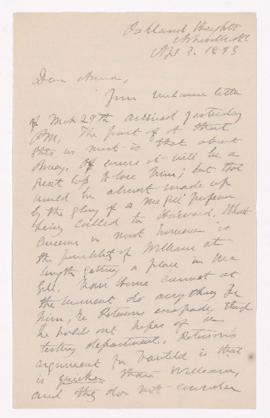 Oakland Heights
Asheville
Apl 3. 1893
Dear Anna,
Your welcome letter
of Mch 29th arrived yesterday
P.M. The part of it that
hits us most is that about
Of course it will be a
great loss to lose him; but that
would be almost made up
by the glory of a McGill professor
being called to Harvard. What
concerns us most however is
the possibility of William at
length getting a place in Mc
Gill. Your Home cannot at
the moment do anything for
him; he
he holds out hopes of a
testing department.
argument for is that
is quicker than William,
and they do not consider